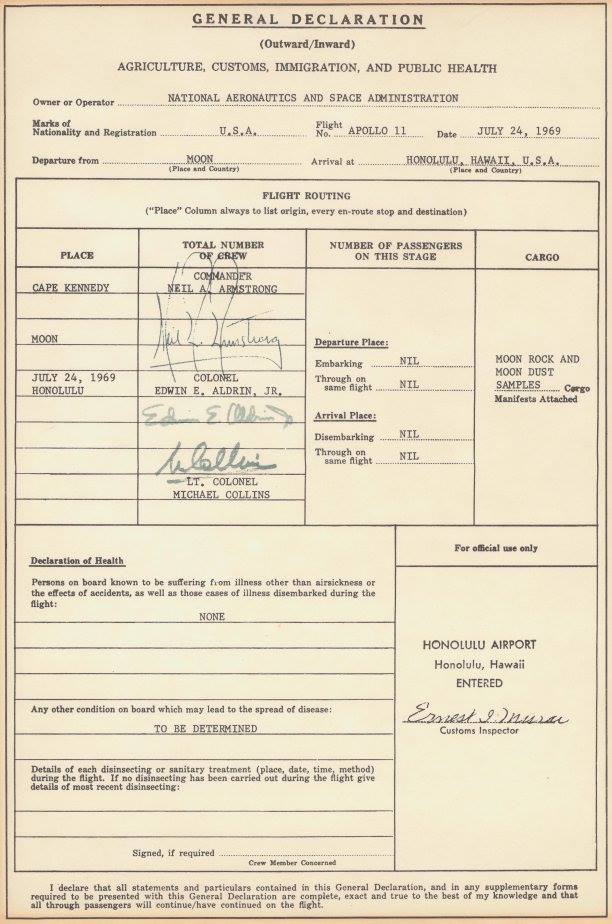 GENERAL DECLARATION
(Outward/Inward)
AGRICULTURE, CUSTOMS, IMMIGRATION, AND PUBLIC HEALTH
Owner or Operator NATIONAL AERONAUTICS AND SPACE ADMINISTRATION
Marks of
Nationality and Registration U.S.A. Flight No. APOLLO 11 Date JULY 24, 1969
Departure from MOON Arrival at HONOLULU, HAWAII, U.S.A.
(Place and Country) (Place and Country)
FLIGHT ROUTING
("Place" Column always to list origin, every en-route stop and destination)
PLACE
CAPE KENNEDY
MOON
JULY 24, 1969
HONOLULU
TOTAL NUMBER
OF CREW
COMMANDER
NEIL A. ARMSTRONG
Neil A. Armstrong
COLONEL
EDWIN E. ALDRIN, JR.
Edwin E. Aldrin Jr
M Collins
LT. COLONEL
MICHAEL COLLINS
NUMBER OF PASSENGERS
ON THIS STAGE
Departure Place:
Embarking NIL
Through on
same flight NIL
Arrival Place:
Disembarking NIL
Through on
same flight NIL
CARGO
MOON ROCK AND
MOON DUST
SAMPLES Cargo
Manifests Attached
Declaration of Health
Persons on board known to be suffering from illness other than airsickness or
the effects of accidents, as well as those cases of illness disembarked during the
flight:
NONE
Any other condition on board which may lead to the spread of disease:
TO BE DETERMINED
Details of each disinsecting or sanitary treatment (place, date, time, method)
during the flight. If no disinsecting has been carried out during the flight give
details of most recent disinsecting:
Signed, if required
Crew Member Concerned
For official use only
HONOLULU AIRPORT
Honolulu, Hawaii
ENTERED
Ernest I.
Customs Inspector
I declare that all statements and particulars contained in this General Declaration, and in any supplementary forms
required to be presented with this General Declaration are complete, exact and true to the best of my knowledge and that
all through passengers will continue/have continued on the flight.